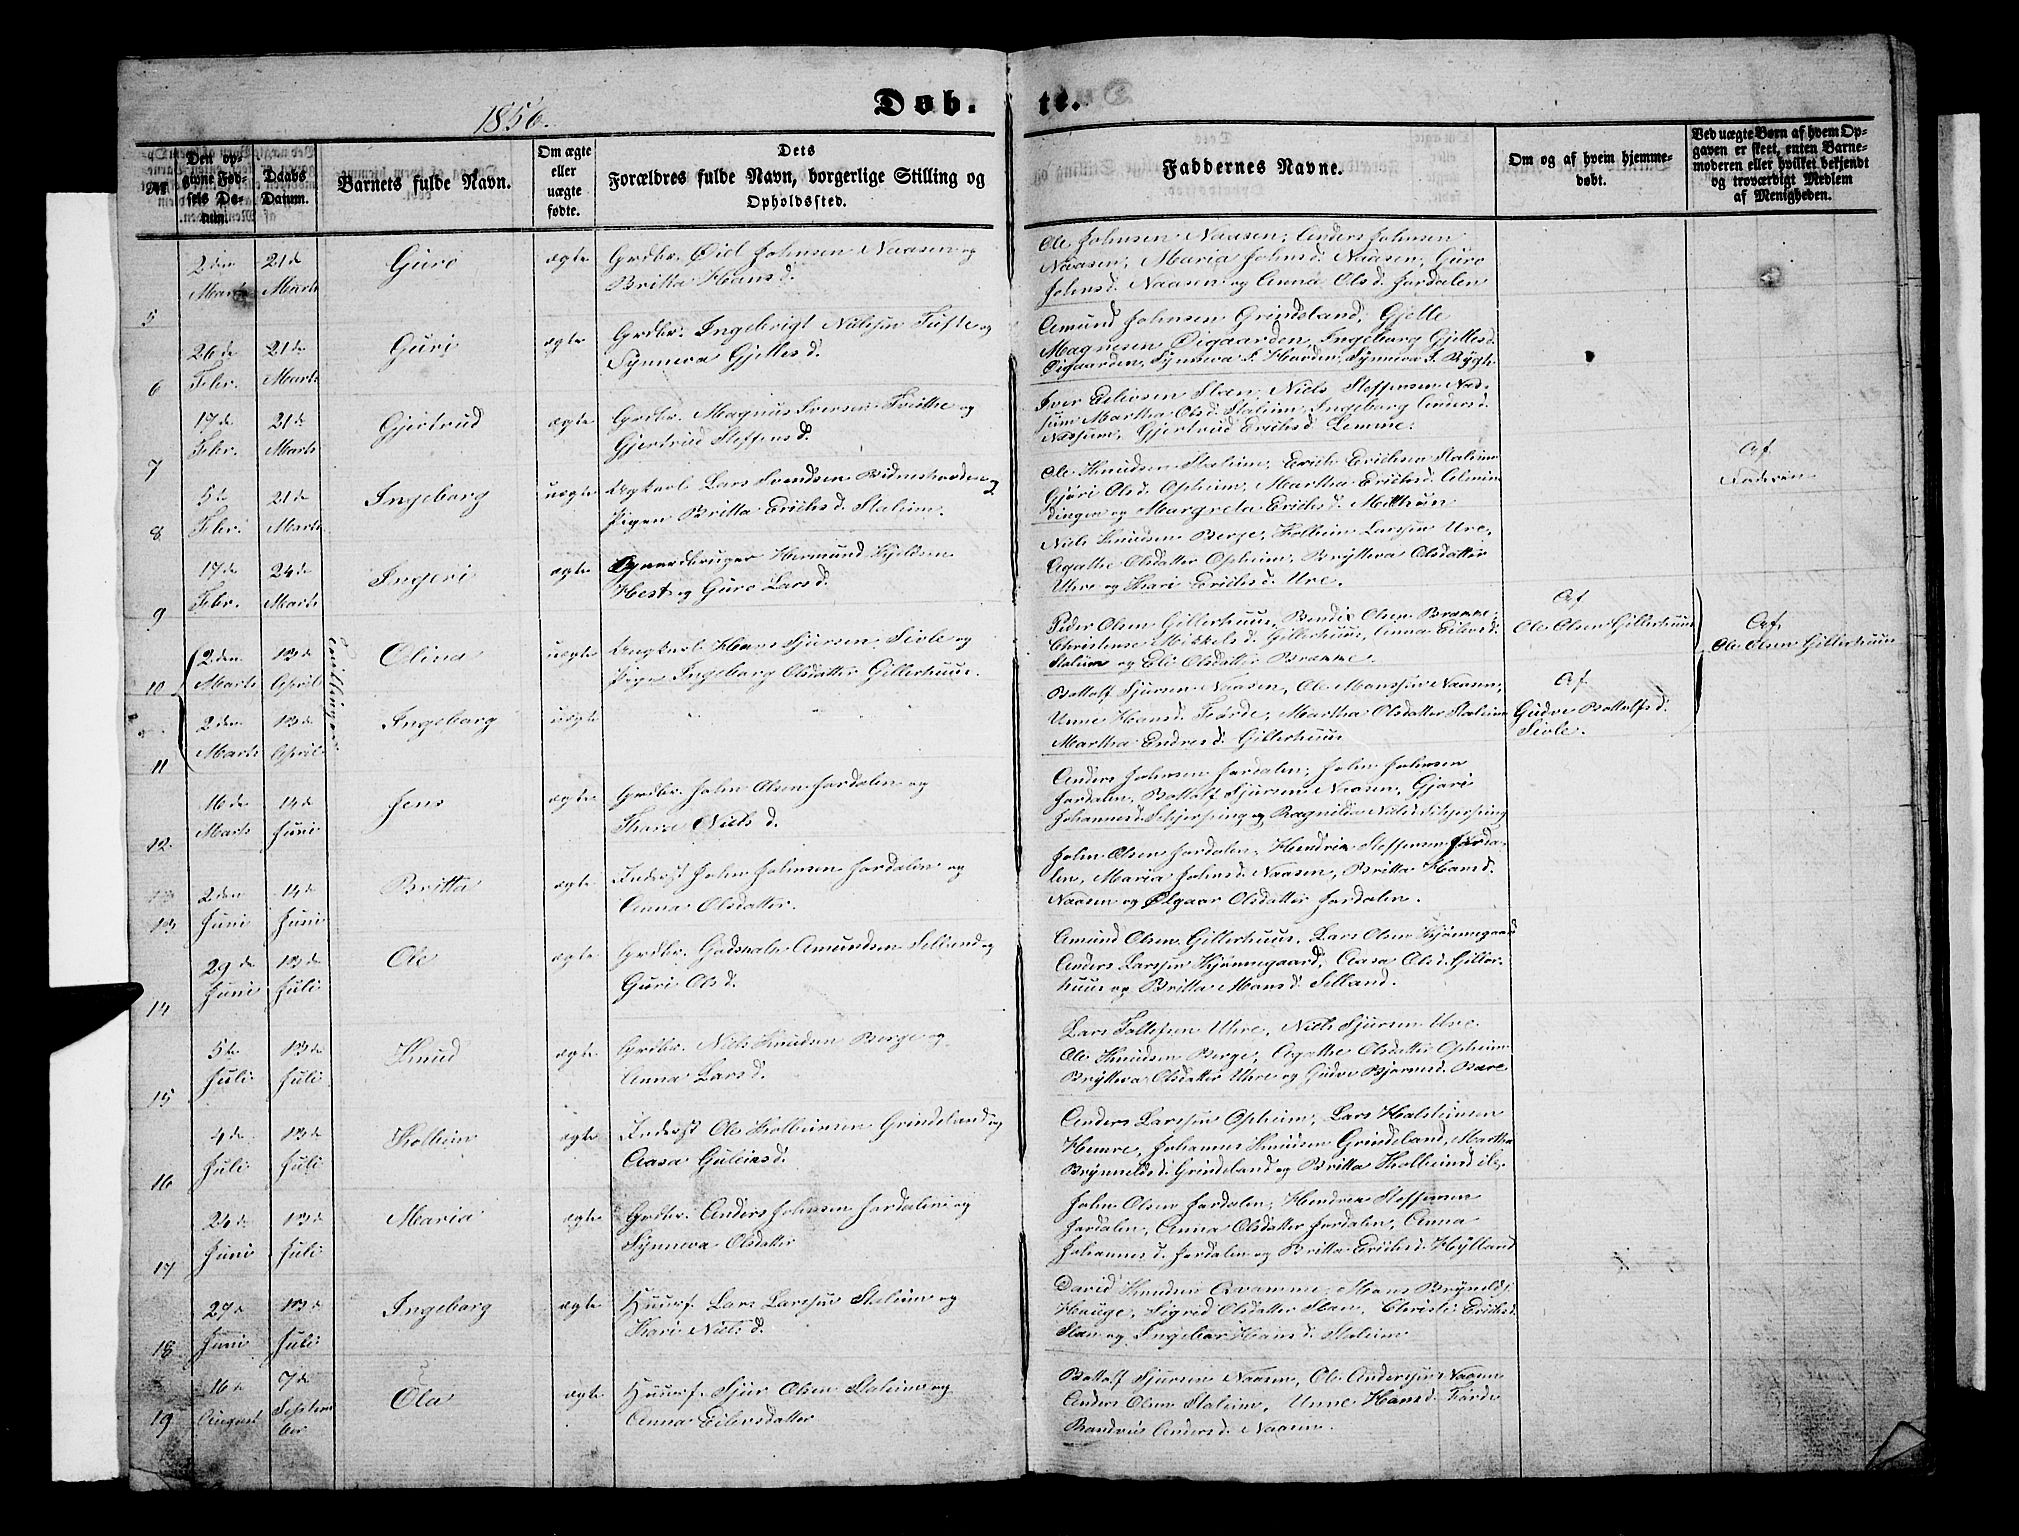 1856.
Døb. te.
No
Den op-
givne Fød-
sels Da-
tum.
Daabs
Datum.
Barnets fulde Navn.
Om ægte
eller
uægte
fødte.
Dets
Forældres fulde Navn, borgerlige Stilling og
Opholdssted.
Faddernes Navne.
Om og af hvem hjemme-
døbt.
Ved uægte Børn af hvem Op-
gaven er skeet, enten Barne-
moderen eller hvilket bekjendt
og troværdigt Medlem
af Menigheden.
5
2den Marts
21de Marts
Guro
ægte
Grdbr. Johnsen Naasen og
Britta Hansd.
Ole Johnsen Naasen, Anders Johnsen
Naasen, Maria Johnsd. Naasen, Guro
Johnsd. Naasen og Anna Olsd. Jordalen
6
26de Febr.
21de Marts
Guri
ægte
Grdbr. Ingebrigt Nielsen Tufte og
Synneva Gjellesd.
Amund Johnsen Grindeland, Gjelle
Magnesen Øigaarden, Ingeborg Gjellesd.
Øigaarden, Synneva Haarden, Synneva
7
17de Febr.
21de Marts
Gjertrud
ægte
Grdbr. Magnus Iversen og
Gjertrud Steffensd.
Iver Slæn, Niels Steffensen
Martha Olsd. Stalium, Ingeborg Andersd.
Gjertrud Erichsd.
8
5te Febr.
21de Marts
Ingeborg
uægte
Ungkarl Lars Svendsen
Pigen Britta Erichsd. Stalium.
Ole Knudsen Stalium, Erich Erichsen Stalium
Gjøri Olsd. Opheim, Martha Erichsd.
og Margreta Erichsd.
Af
Faderen
9
17de Febr.
24de Marts
Ingeri
ægte
Gaardbruger Hermund Kjeldsen
Hest og Guro Larsd.
Niels Knudsen Berge, Kolbein Larssen Ure,
Agathe Olsdatter Opheim, Brytteva Olsdatter
Uhre og Kari Erichsd. Ure.
10
2den Marts
13de April
Tvillinger
Olina
uægte
Ungkarl Hans Sjursen Sivle og
Pigen Ingeborg Olsdatter Gillerhuus.
Peder Olsen Gillerhuus, Bendic Olsen Bramme,
Christense Mikkelsd. Gillerhuus, Anna Eilersd.
Stalium og Eli Olsdatter Bramme.
Af
Ole Olsen Gillerhuus
Af
Ole Olsen Gillerhuus
11
2den Marts
13de April
Ingeborg
uægte
Bottolf Sjursen Naasen, Ole Monssen Naasen,
Unne Hansd. Førde, Martha Olsdatter Stalium
Martha Endresd. Gillerhuus
Af
Gudve Bottolfsd.
Sivle.
12
16de Marts
14de Juni
Jens
ægte
Grdbr. John Olsen Jordalen og
Nielsd.
Anders Johnsen Jordalen, John Johnsen
Jordalen, Bottolf Sjursen Naasen, Gjøri
Johannesd. Skjerping og Ragnilda Nielsd. Skjerping
13
2den Juni
14de Juni
Britta
ægte
Inderst John Johnsen Jordalen og
Anna Olsdatter.
John Olsen Jordalen, Hendrik Steffensen Jorda-
len, Maria Johnsd. Naasen, Britta Hansd.
Naasen og Ølgaar Olsdatter Jordalen.
14
29de Juni
13de Juli
Ole
ægte
Grdbr. Godskalk Amundsen Selland og
Guri Olsd.
Amund Olsen Gillerhuus, Lars Olsen Hjønnegaard
Anders Larssen Hjønnegaard, Aasa Olsd. Giller-
huus og Britta Monsd. Selland.
15
5te Juli
13de Juli
Knud
ægte
Grdbr. Niels Knudsen Berge og
Anna Larsd.
Lars Uhre, Niels Sjursen Ure
Ole Knudsen Berge, Agathe Olsdatter Opheim
Brytteva Olsdatter Uhre og Gudve Bjørnsd.
16
4de Juli
13de Juli
Kolbein
ægte
Inderst Ole Kolbeinsen Grindeland og
Aasa
Anders Larssen Opheim, Lars Halsteinsen
Hemre, Johannes Knudsen Grindeland, Martha
Brynnildsd. Grindeland og Britta Kolbeinsd.
17
24de Juni
13de Juli
Maria
ægte
Grdbr. Anders Johnsen Jordalen og
Synneva Olsdatter
John Olsen Jordalen, Hendrik Steffensen
Jordalen, Anna Olsdatter Jordalen, Anna
Johannesd. Jordalen og Britta Erichsd. Hylland
18
27de Juni
13de Juli
Ingeborg
ægte
Huusf. Lars Larssen Stalium og
Kari Nielsd.
David Knudsen Qvamme, Mons Brynilds.
Hauge, Sigrid Olsdatter Slæn, Christi Erichsd.
Slæn og Ingebor Hansd. Stalium
19
16de August
7de September
Ola
ægte
Huusf. Sjur Olsen Stalium og
Anna Eilersdatter
Bottolf Sjursen Naasen, Ole Anderssen Naasen
Anders Olsen Stalium, Unne Hansd. Førde
Andersd. Naasen